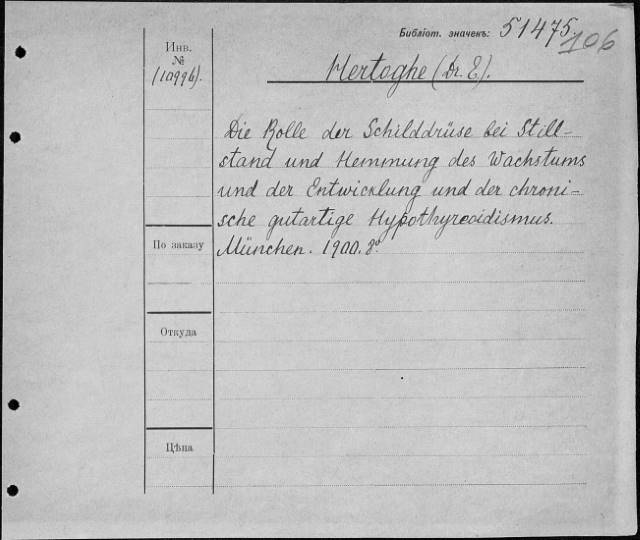 Библіот. значекъ: 51475
106
Инв.
№
(10996).
Hertoghe (Dr. E).
Die Rolle der Schilddrüse bei Still-
stand und Hemmung des Wachstums
und der Entwicklung und der chroni-
sche gutartige Hypothyreoidismus.
München. 1900. 8°
По заказу
Откуда
Цѣна